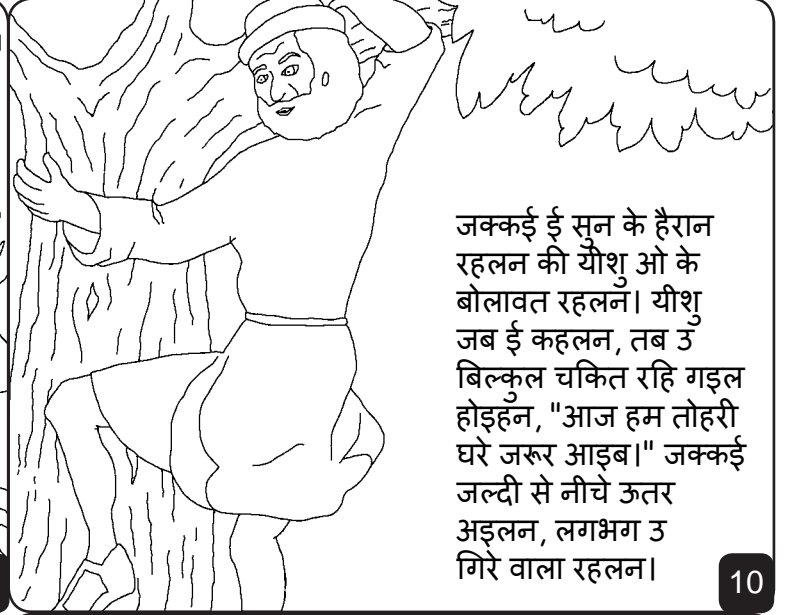 जक्कई ई सुन के हैरान
रहलन की यीशु ओ के
बोलावत रहलन। यीशु
जब ई कहलन, तब उ
बिल्कुल चकित रहि गइल
होइहन, "आज हम तोहरी
घरे जरूर आइब।" जक्कई
जल्दी से नीचे ऊतर
अइलन, लगभग उ
गिरे वाला रहलन।
10